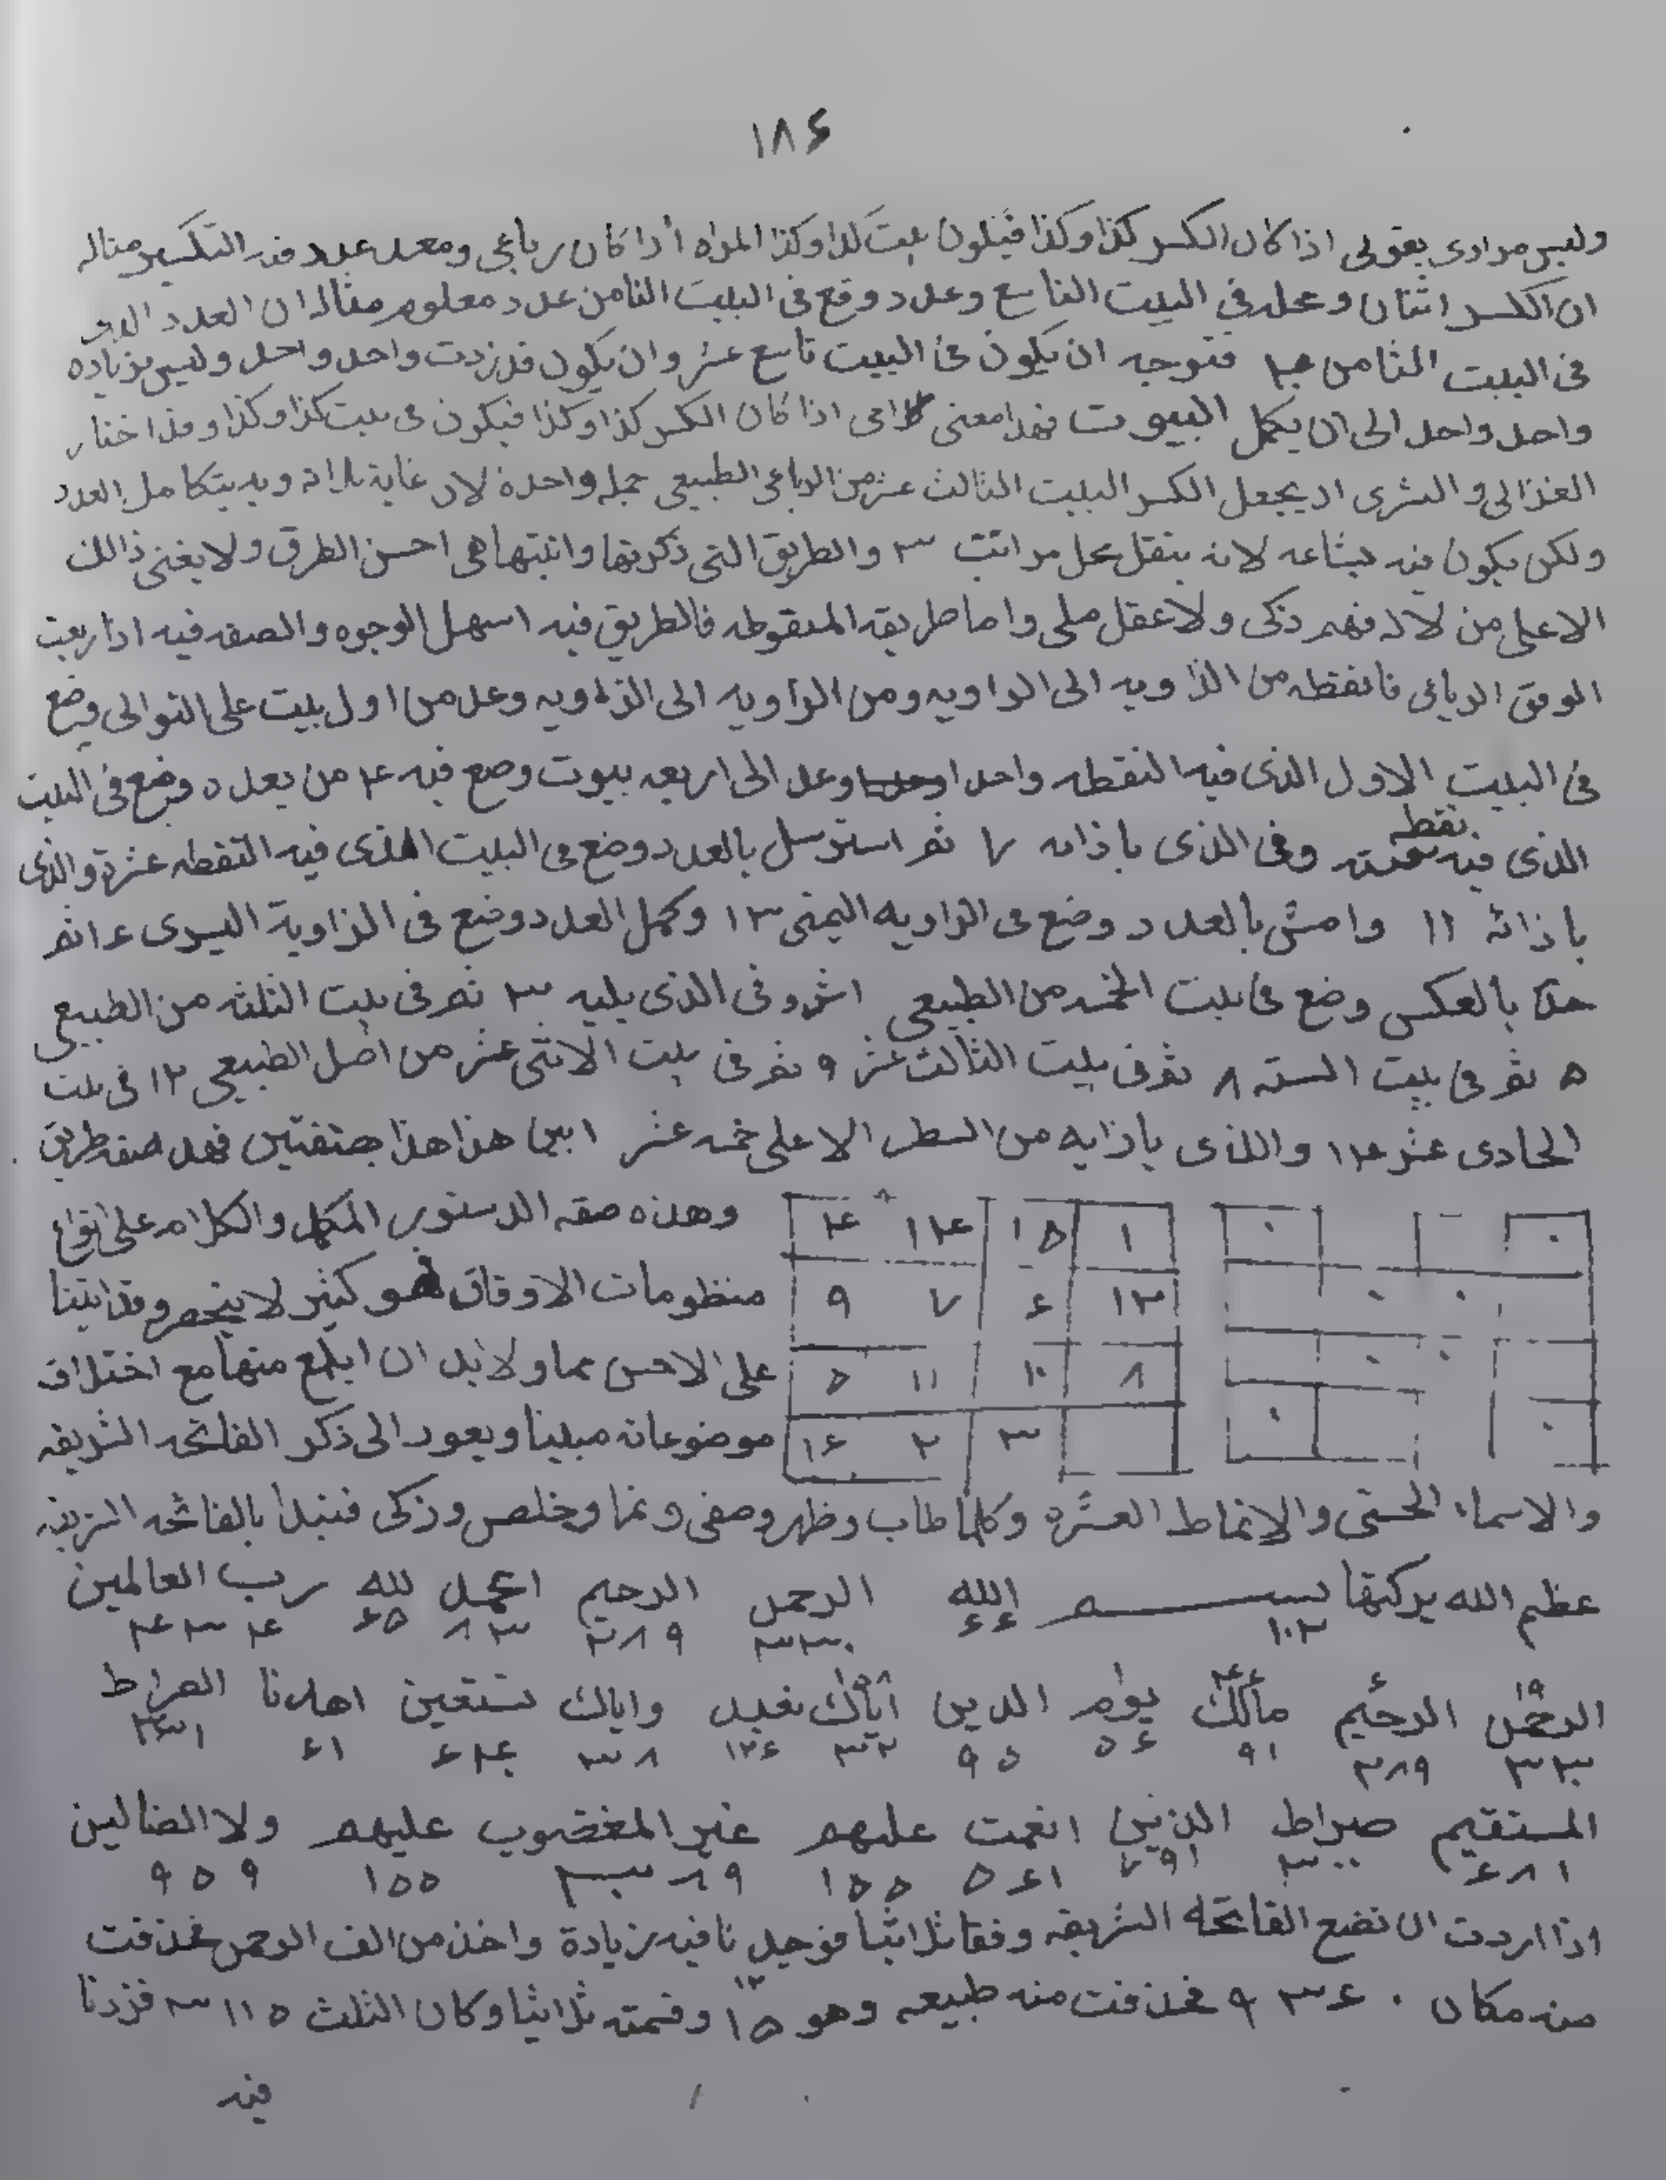 ١٨٤
وليس مرادى بقولى اذا كان الكسر كذا وكذا فيكون بيت كذا وكذا المراد اذا كان رباعى ومعه عدد فيه التكسير مثاله
ان الكسر اثنان وعمله فى البيت التاسع وعدد وقع فى البيت الثامن عدد معلوم مثاله ان العدد الذى
فى البيت الثامن فتوجه ان يكون فى البيت تاسع عشر وان يكون قد زدت واحد واحد وليس بزياده
واحد واحد الى ان يكمل البيوت فهذا معنى كلامى اذا كان الكسر كذا وكذا فيكون فى بيت كذا وكذا وقد اختار
الغزالى و ان يجعل الكسر البيت الثالث عشر من الرباعى الطبيعى جمله واحدة لان وبه يتكامل العدد
ولكن يكون فيه لانه ينقل مراتب ٣ والطريق التى ذكرتها هى احسن الطرق ولا يغنى ذالك
الاعلى من لا له فهم ذكى ولا عقل ملى واما طريقه المنقوطه فالطريق فيه اسهل الوجوه والصفه فيه اذا ربعت
الوفق الرباعى فانقطه من الزاويه الى الزاويه ومن الزاويه الى الزاويه وعد من اول بيت على التوالى وضع
فى البيت الاول الذى فيه النقطه واحدا وعد الى اربعه بيوت وضع فيه ٤ من بعده وضع فى البيت
الذى فيه نقطه وفى الذى باذائه ٧ ثم استرسل بالعدد وضع فى البيت الذى فيه النقطه عشرة والذى
باذائه ١١ وامش بالعدد وضع فى الزاويه اليمنى ١٣ وكمل العدد وضع فى الزاوية اليسرى ١٦ ثم
بالعكس وضع فى بيت الخمسه من الطبيعى وفى الذى يليه ٣ ثم فى بيت الثلثه من الطبيعى
٥ ثم فى بيت السته ٨ ثم فى بيت الثالث عشر ٩ ثم فى بيت الاثنى عشر من اصل الطبيعى ١٢ فى بيت
الحادى عشر ١٤ والذى باذايه من السطر الاعلى خمسه عشر هذا صفه طريق
وهذه صفه الدستور المكمل والكلام على انواع
١ ١٥ ١٤ ٤
منظومات الاوفاق فهو كثير لا ينحصر وقد اتينا
١٢ ٦ ٧ ٩
على الاحسن مما ولا بد ان مع اختلاف
٨ ١٠ ١١ ٥
موضوعاته مبينا ويعود الى ذكر الفاتحه الشريفه
٣ ٢ ١٦
والاسماء الحسنى والانماط العشره وكلما طاب وظهر وصفى ونما وخلص وزكى فنبدا بالفاتحه الشريفه
عظم الله بركتها بسم الله الرحمن الرحيم الحمد لله رب العالمين
١٠٢ ٦٦ ٣٣٠ ٢٨٩ ٨٣ ٦٥
الرحمن الرحيم مالك يوم الدين اياك نعبد واياك نستعين اهدنا الصراط
٣٣٠ ٢٨٩ ٩١ ٥٦ ٩٥ ٣٢ ١٢٦ ٣٨ ٦١ ٣٣١
المستقيم صراط الذين انعمت عليهم غير المغضوب عليهم ولا الضالين
٦٨١ ٣٠٠ ٧٩١ ٥٦١ ١٥٥ ١٥٥ ٩٥٩
اذا اردت ان تضع الفاتحه الشريفه وفقا ثلاثيا فوجدنا فيه زيادة واخذ من الف الرحمن فحذفت
منه مكان ٩٣٦٠ فحذفت منه طبيعه وهو ١٥ وقسمته ثلاثيا وكان الثلث ٣١١٥ فزدنا
فيه